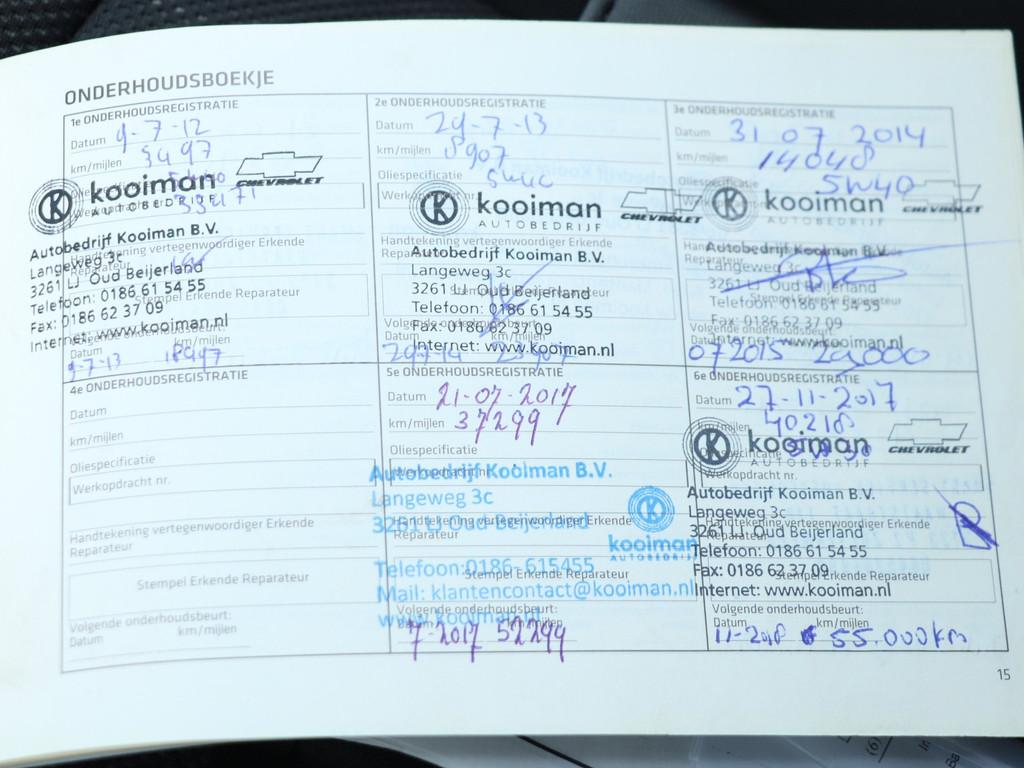 ONDERHOUDSBOEKJE
1e ONDERHOUDSREGISTRATIE
Datum 9-7-12
km/mijlen 3497
kooiman CHEVROLET
AUTOBEDRIJF
Autobedrijf Kooiman B.V.
Langeweg 3c
Handtekening vertegenwoordiger Erkende
Reparateur
3261 LJ Oud Beijerland
Stempel Erkende Reparateur
Telefoon: 0186 61 54 55
Fax: 0186 62 37 09
Internet: www.kooiman.nl
Volgende onderhoudsbeurt:
Datum km/mijlen
9-7-13 18497
2e ONDERHOUDSREGISTRATIE
Datum 29-7-13
km/mijlen 8907
Oliespecificatie
Werkopdracht nr.
kooiman CHEVROLET
AUTOBEDRIJF
Handtekening vertegenwoordiger Erkende
Reparateur
Autobedrijf Kooiman B.V.
Langeweg 3c
3261 LJ Oud Beijerland
Telefoon: 0186 61 54 55
Fax: 0186 62 37 09
Volgende onderhoudsbeurt:
Datum km/mijlen
Internet: www.kooiman.nl
29-7-14 23907
3e ONDERHOUDSREGISTRATIE
Datum 31 07 2014
km/mijlen 14048
Oliespecificatie 5W40
kooiman CHEVROLET
AUTOBEDRIJF
Autobedrijf Kooiman B.V.
Reparateur
Langeweg 3c
3261 LJ Oud Beijerland
Stempel Erkende Reparateur
Telefoon: 0186 61 54 55
Fax: 0186 62 37 09
Volgende onderhoudsbeurt:
Internet: www.kooiman.nl
07 2015 29.000
4e ONDERHOUDSREGISTRATIE
Datum
km/mijlen
Oliespecificatie
Werkopdracht nr.
Handtekening vertegenwoordiger Erkende
Reparateur
Stempel Erkende Reparateur
Volgende onderhoudsbeurt:
Datum km/mijlen
5e ONDERHOUDSREGISTRATIE
Datum 21-07-2017
km/mijlen 37299
Oliespecificatie
Werkopdracht nr.
Autobedrijf Kooiman B.V.
Langeweg 3c
3261 LJ Oud Beijerland
Handtekening vertegenwoordiger Erkende
Reparateur
kooiman
AUTOBEDRIJF
Telefoon: 0186-615455
Stempel Erkende Reparateur
Mail: klantencontact@kooiman.nl
www.kooiman.nl
Volgende onderhoudsbeurt:
Datum km/mijlen
7-2017 52299
6e ONDERHOUDSREGISTRATIE
Datum 27-11-2017
km/mijlen 40218
kooiman CHEVROLET
AUTOBEDRIJF
Werkopdracht nr.
Autobedrijf Kooiman B.V.
Langeweg 3c
Handtekening vertegenwoordiger Erkende
Reparateur
3261 LJ Oud Beijerland
Telefoon: 0186 61 54 55
Fax: 0186 62 37 09
Stempel Erkende Reparateur
Internet: www.kooiman.nl
Volgende onderhoudsbeurt:
Datum km/mijlen
11-2018 55.000km
15